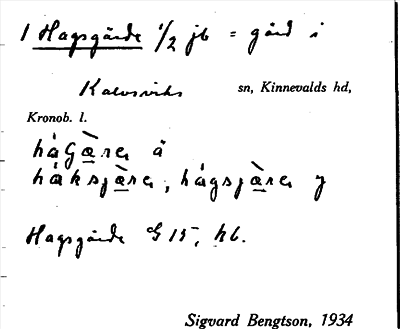 1 Hagsgärde 1/2 jb = gård i
Kalvsviks sn, Kinnevalds hd,
Kronob. l.
hagæ̀rer ä
haksjæ̀rer, hagsjæ̀rer y
Hagsgärde G 15, kb.
Sigvard Bengtson, 1934